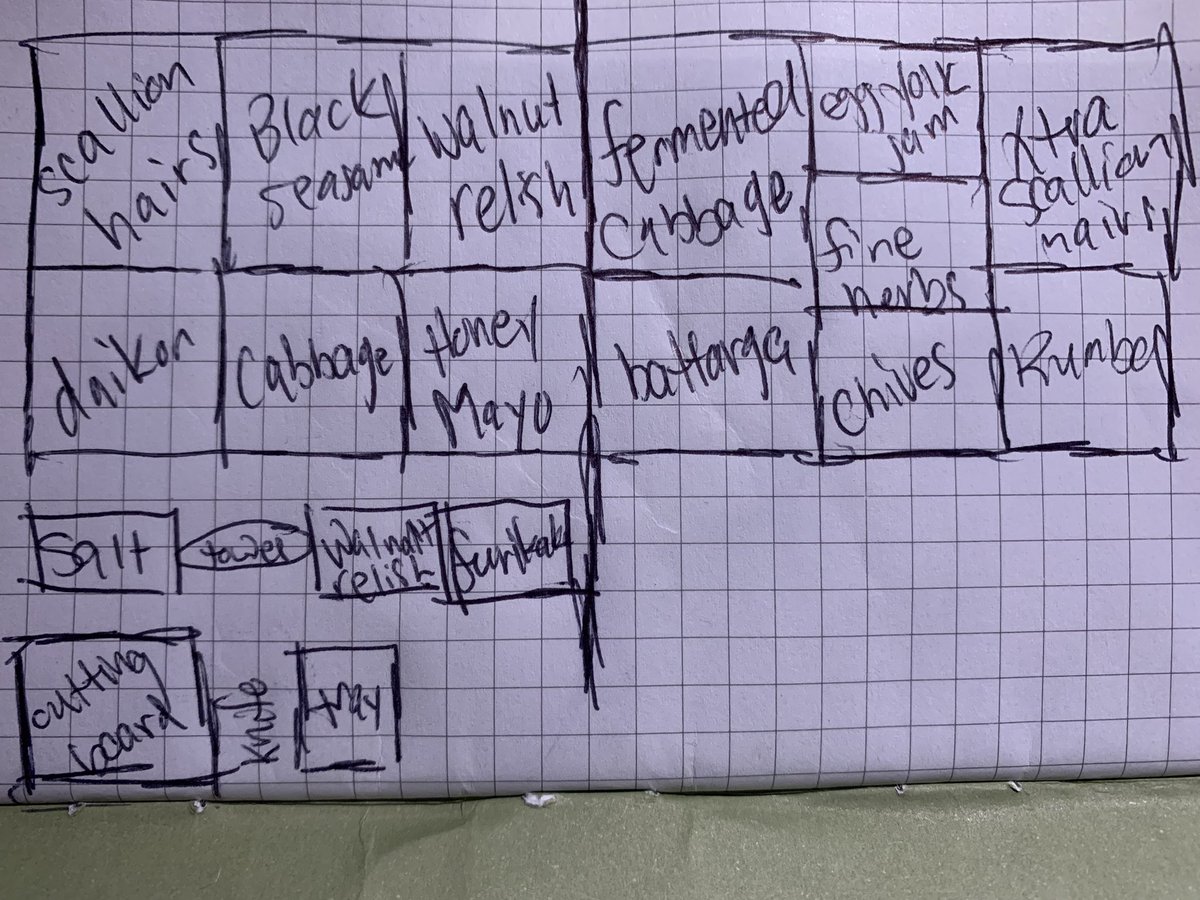 scallion
hairs
Black
seasame
walnut
relish
fermented
cabbage
eggyolk
jam
xtra
scallion
hairs
fine
herbs
daikon
Cabbage
Honey
Mayo
battarga
chives
Kumbo
Salt
towel
walnut
relish
furikake
cutting
board
knife
tray